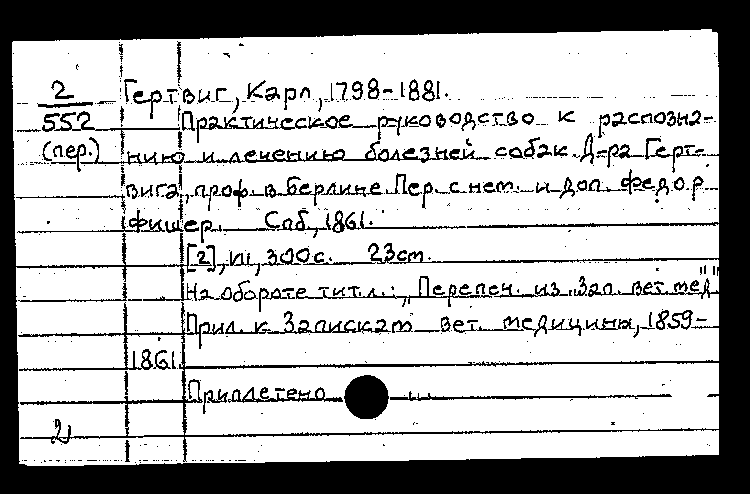 2 Гертвиг, Карл, 1798-1881.
552 Практическое руководство к распозна-
(пер.) нию и лечению болезней собак. Д-ра Герт-
вига, проф. в Берлине. Пер. с нем. и доп. Федор
Фишер. Спб, 1861.
[2], VII, 300 с. 23 см.
На обороте тит. л.: "Перепеч. из Зап. вет. мед."
Прил. к Запискам вет. медицины, 1859-
1861.
Приплетено
2